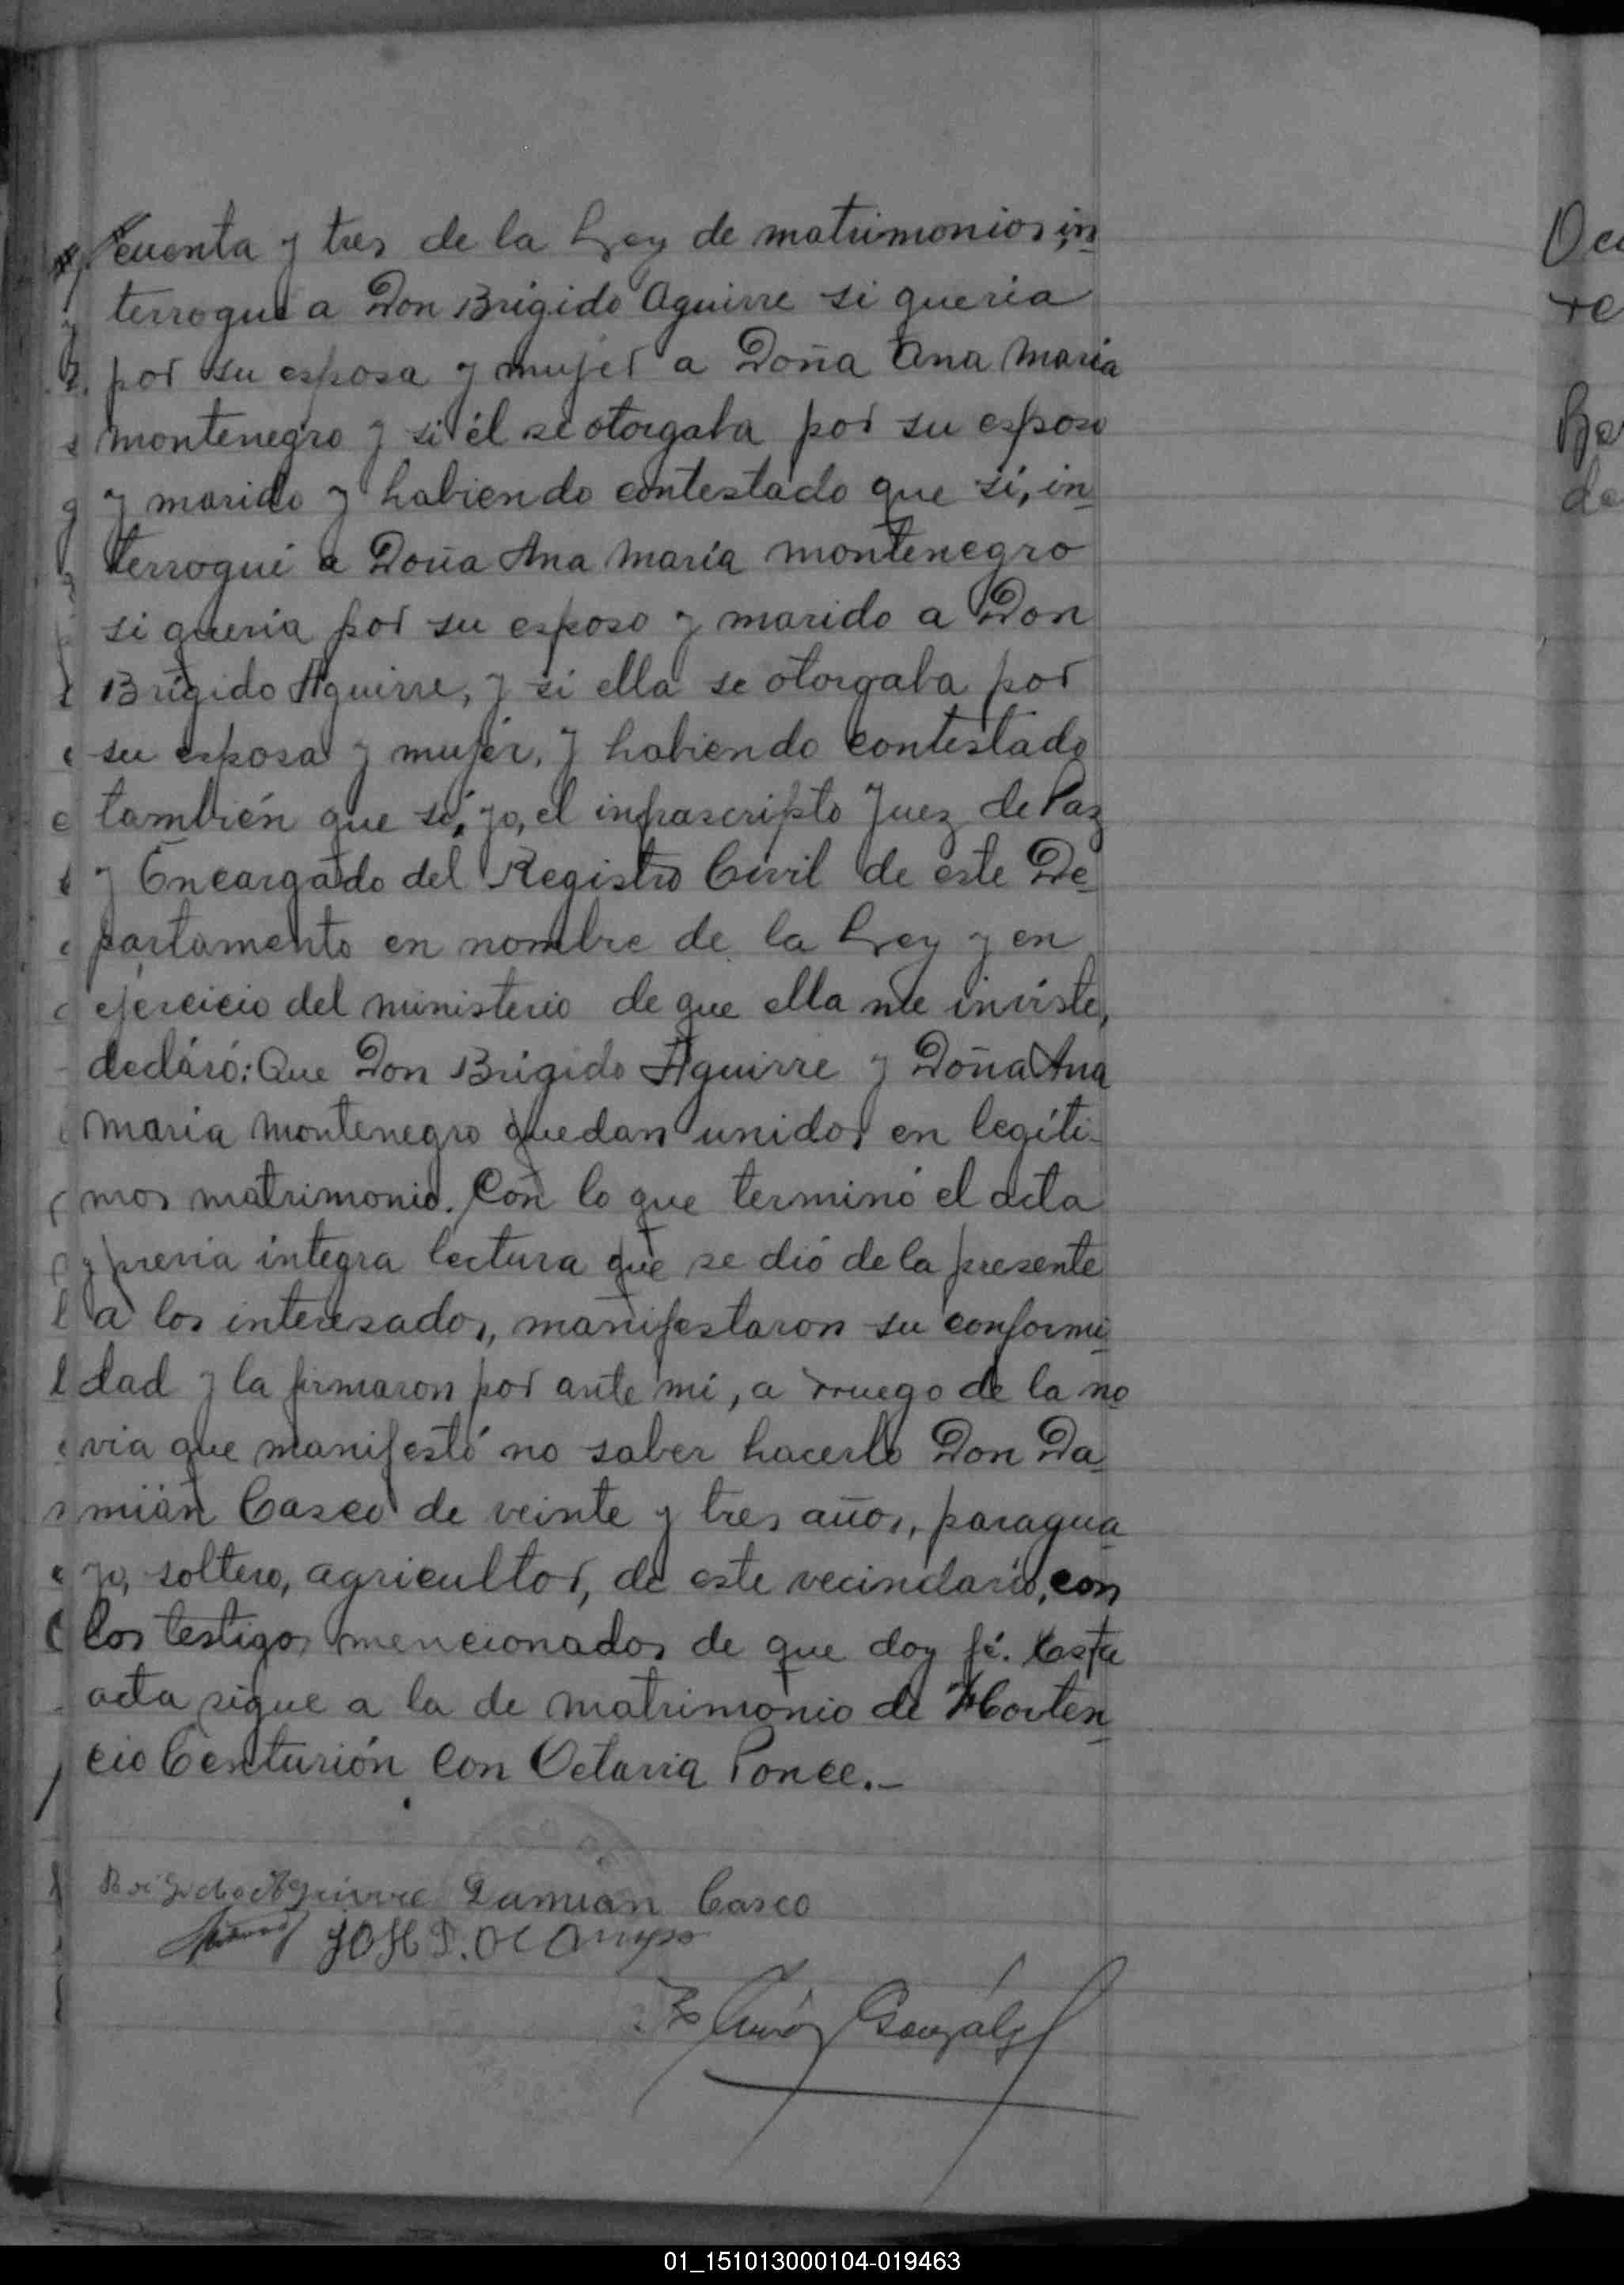 cuenta y tres de la Ley de matrimonios, in
terrogué a Don Brigido Aguirre si queria
por su esposa y mujer a Doña Ana Maria
Montenegro y si él se otorgaba por su esposo
y marido y habiendo contestado que sí, in
terrogué a Doña Ana María Montenegro
si queria por su esposo y marido a Don
Brígido Aguirre, y si ella se otorgaba por
su esposa y mujer, y habiendo contestado
también que sí, yo, el infrascripto Juez de Paz
y Encargado del Registro Civil de este De
partamento en nombre de la Ley y en
ejercicio del ministerio de que ella me inviste,
declaró: Que Don Brígido Aguirre y Doña Ana
María Montenegro quedan unidos en legíti-
mos matrimonio. Con lo que terminó el acta
y previa íntegra lectura que se dió de la presente
a los interesados, manifestaron su conformi
dad y la firmaron por ante mí, a rruego de la no
via que manifestó no saber hacerlo Don Da
mián Casco de veinte y tres años, paragua
yo, soltero, agricultor, de este vecindario, con
los testigos mencionados de que doy fé. Esta
acta sigue a la de matrimonio de Horten
cio Centurión con Octavia Ponce.-
Brigido Aguirre Damián Casco
Ocampo
González
Oc
re
de
01_151013000104-019463